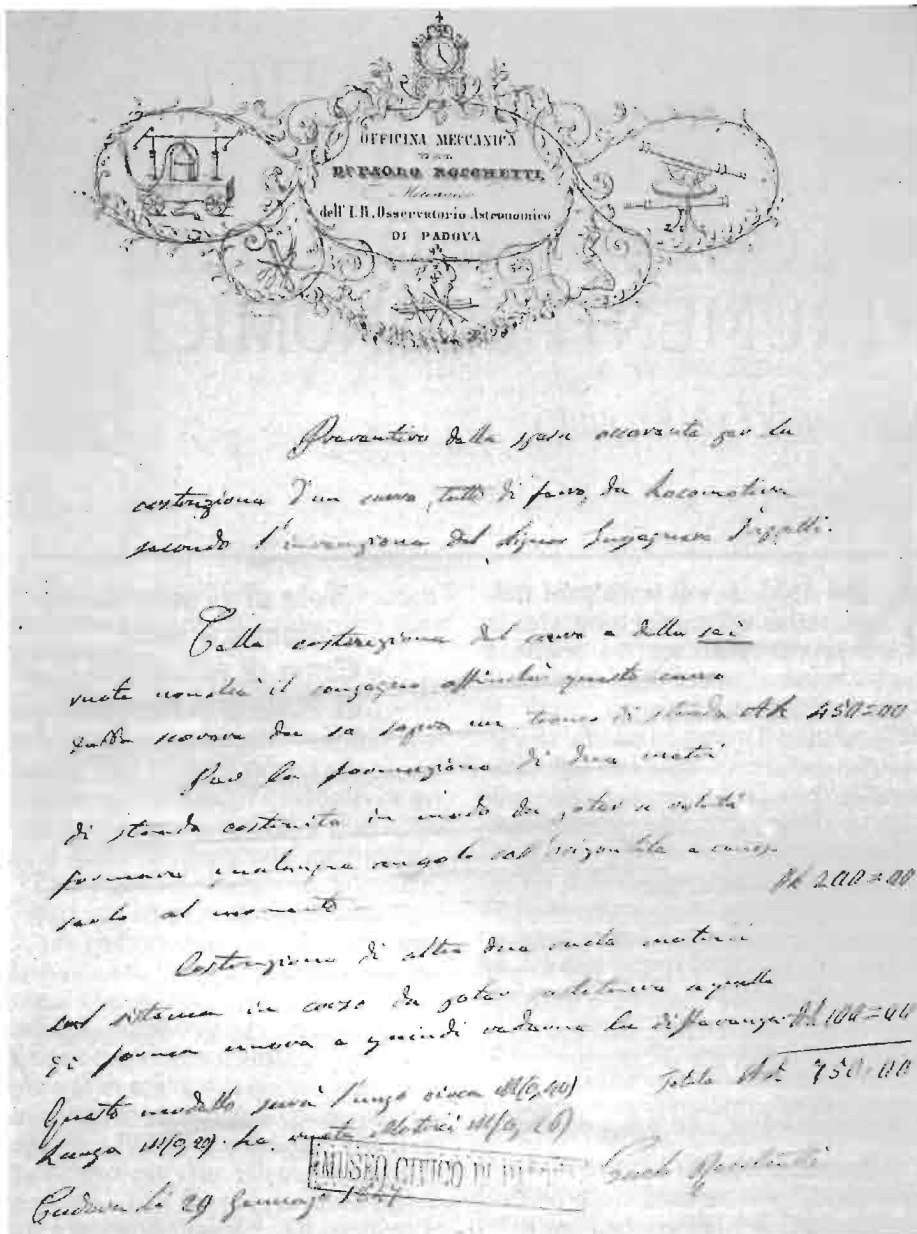 OFFICINA MECCANICA
DI PAOLO ROCCHETTI
Meccanico
dell' I.R. Osservatorio Astronomico
DI PADOVA
Preventivo della spesa occorrente per la
costruzione d'un carro, tutto di ferro, da Locomotiva
secondo l'invenzione del Signor Ingegnere
Dalla costruzione del carro e delle sei
ruote nonchè il congegno affinchè questo carro
debba scorrere da se sopra un tronco di strada AL 450=00
Per la formazione di due metri
di strada costruita in modo da poter a volontà
formare qualunque angolo coll'orizontale e
al momento AL 200=00
Costruzione di altre due ruote motrici
sul sistema in corso da poter a quelle
di forma nuova e quindi vederne la differenza AL 100=00
Totale AL 750=00
Questo modello sarà lungo circa M(0,40)
Largo M(0,29). La ruota Motrici M(0,26)
MUSEO CIVICO DI
Padova li 29 Gennaio